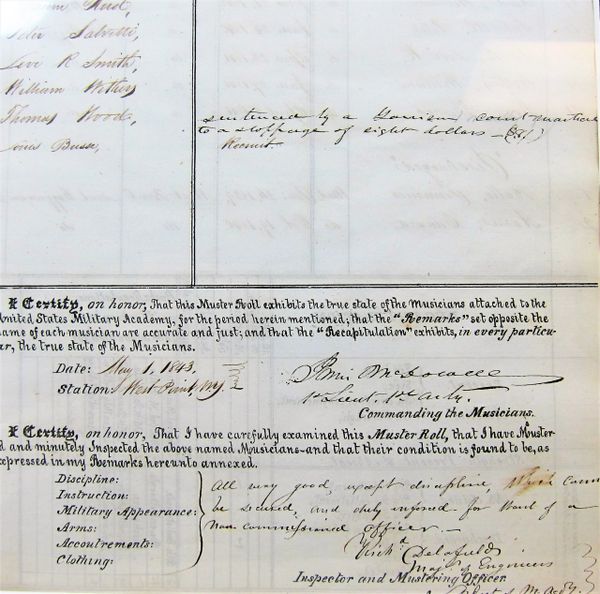 Hurst,
Peter Salvetti,
Levi R Smith,
William Withey
Thomas Wood, sentenced by a Garrison court martial
to a stoppage of eight dollars
Busse, Recruit.
I Certify, on honor, That this Muster Roll exhibits the true state of the Musicians attached to the
United States Military Academy, for the period herein mentioned; that the "Remarks" set opposite the
name of each musician are accurate and just; and that the "Recapitulation" exhibits, in every particu-
ar, the true state of the Musicians.
Date: May 1, 1843,
Station: West Point, NY
McDowell
1st Lieut. 1st Arty.
Commanding the Musicians.
I Certify, on honor, That I have carefully examined this Muster Roll, that I have Muster
d and minutely Inspected the above named Musicians and that their condition is found to be, as
expressed in my Remarks hereunto annexed.
Discipline: All very good, except discipline, which cann
Instruction: be secured, and duly infored for want of a
Military Appearance: non commissioned officer.
Arms:
Accoutrements:
Clothing:
Richd Delafield
Maj. of Engineers
Inspector and Mustering Officer.